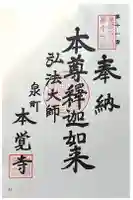 奉納
本尊釋迦如来
弘法大師
泉町
本覚寺